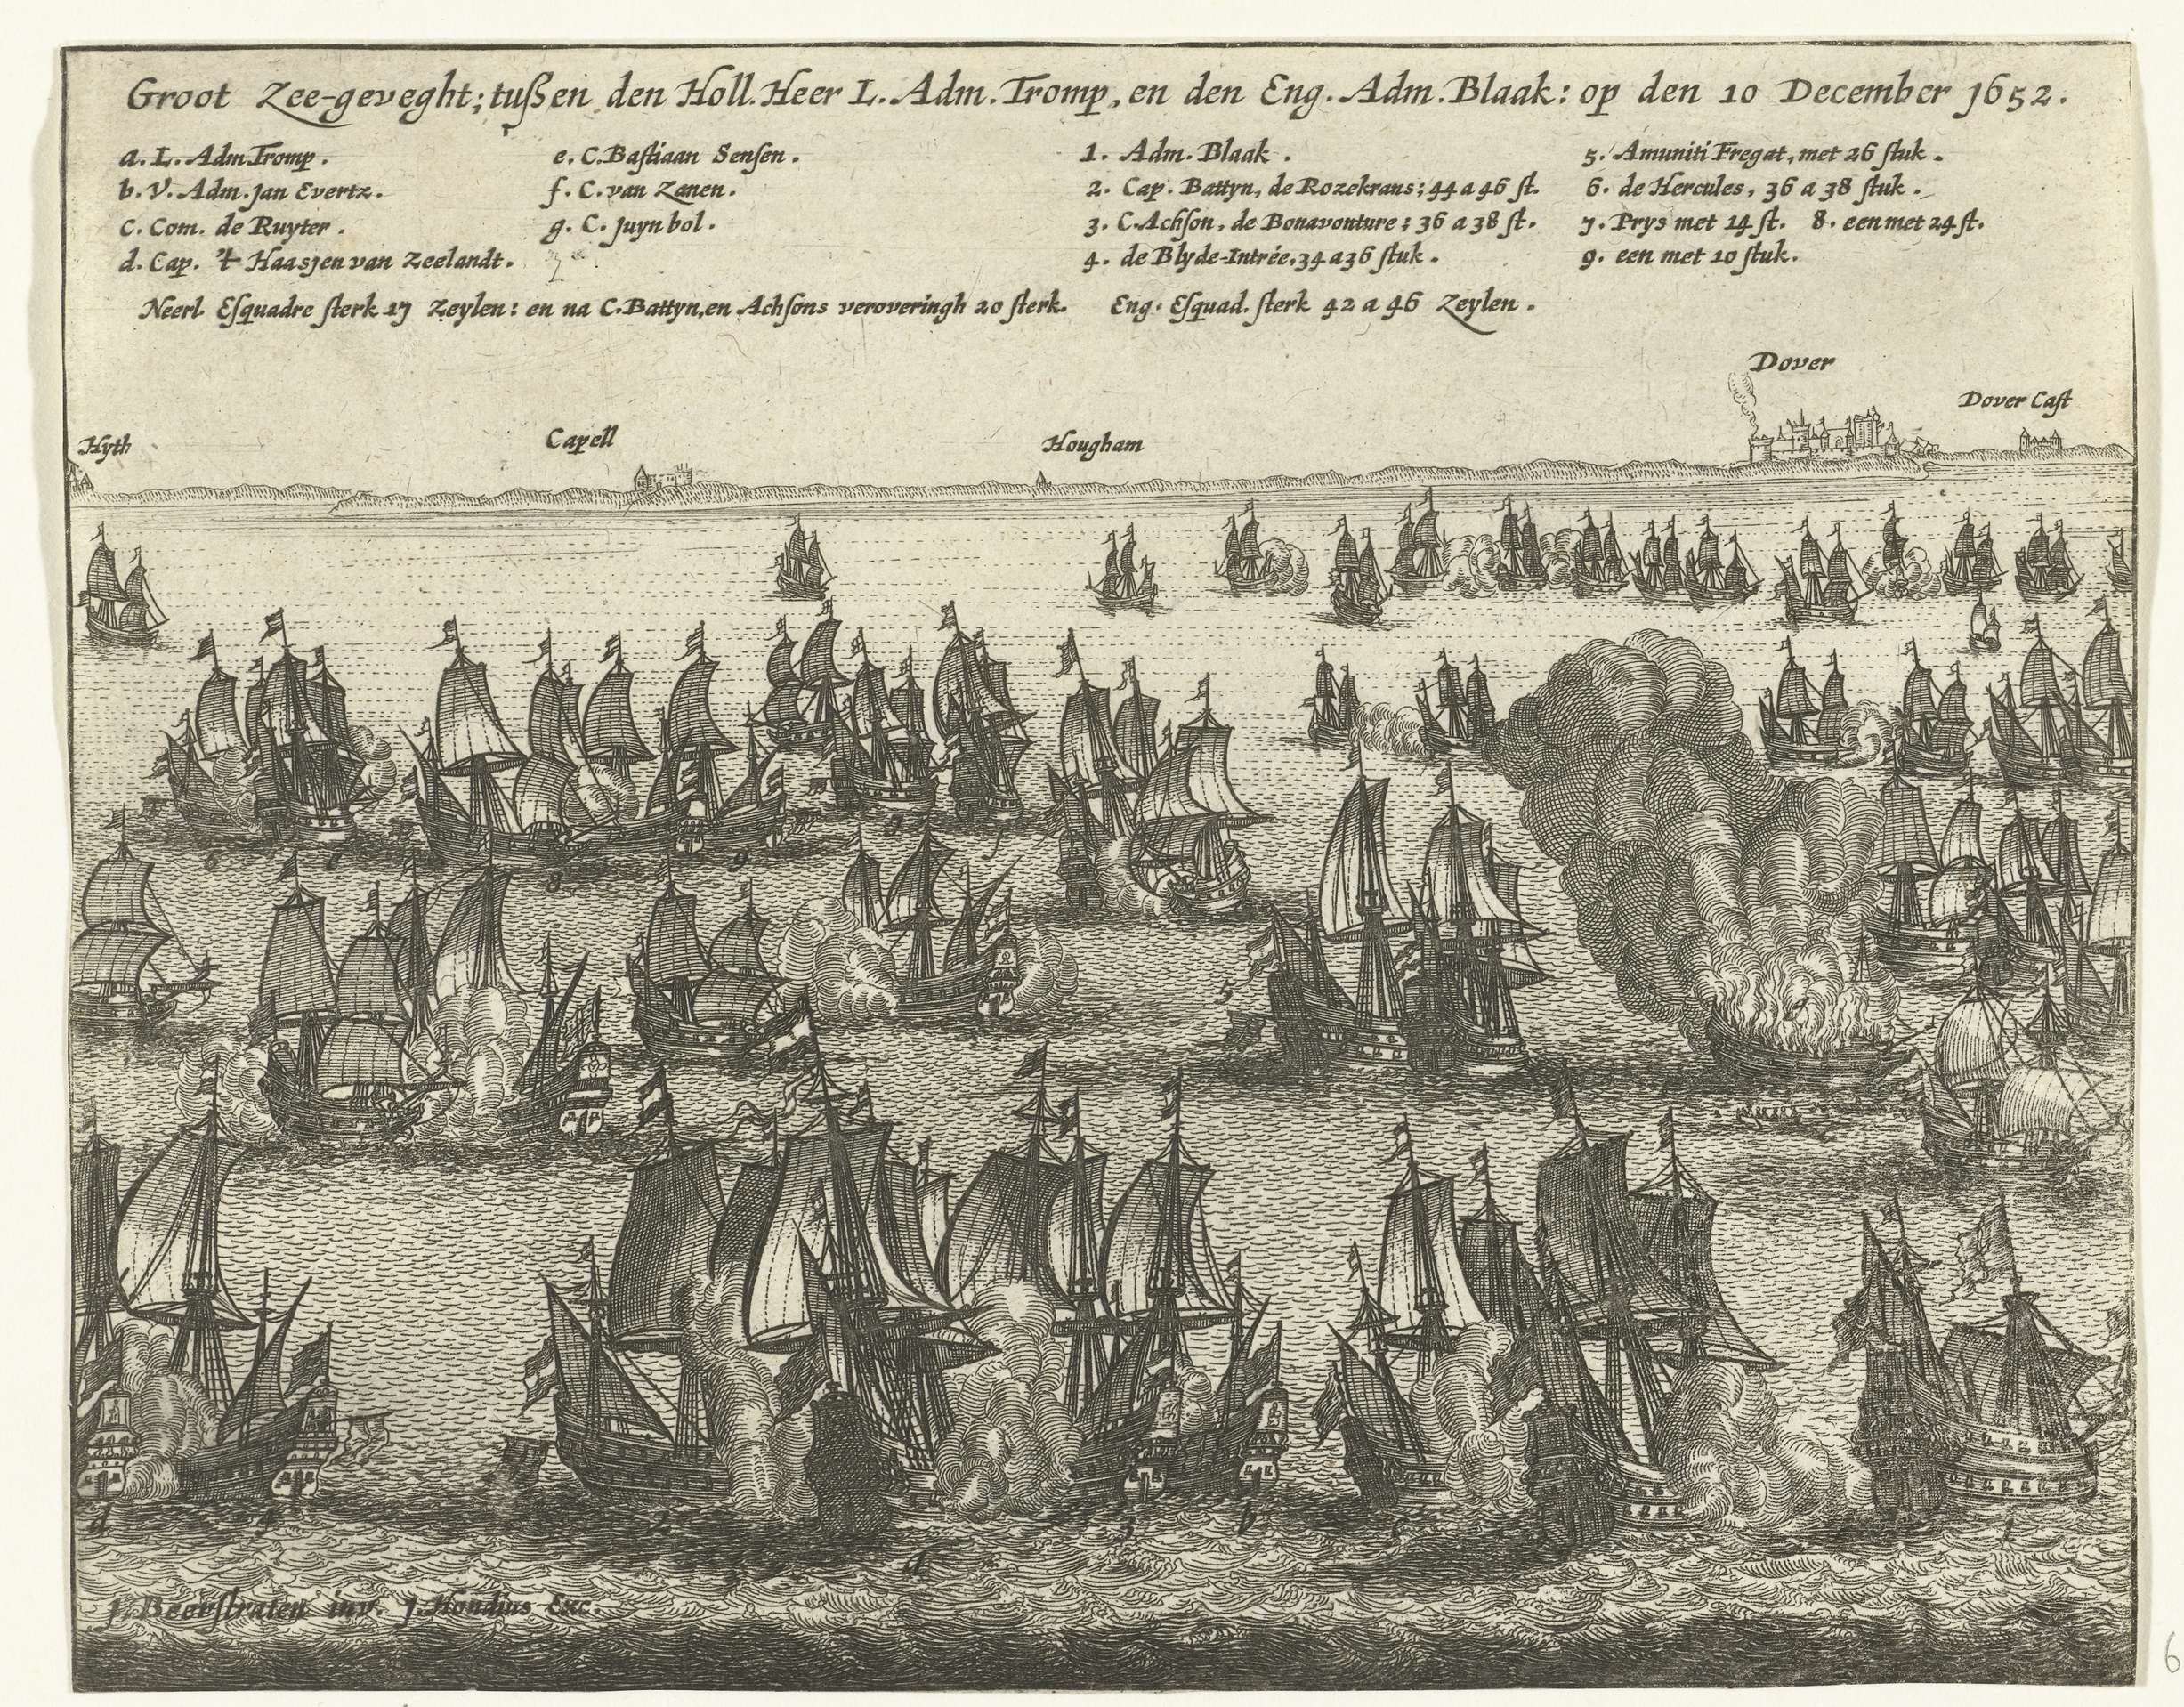 Groot Zee-geveght; tußen den Holl. Heer L. Adm. Tromp, en den Eng. Adm. Blaak: op den 10 December 1652.
a. L. Adm Tromp.
b. V. Adm. Jan Evertz.
c. Com. de Ruyter.
d. Cap. 't Haasjen van Zeelandt.
e. C. Baſtiaan Senſen.
f. C. van Zanen.
g. C. Juynbol.
1. Adm. Blaak.
2. Cap. Battyn, de Rozekrans; 44 a 46 ſt.
3. C. Achſon, de Bonavonture; 36 a 38 ſt.
4. de Blyde-Intrée, 34 a 36 ſtuk.
5. Amuniti Fregat, met 26 ſtuk.
6. de Hercules, 36 a 38 ſtuk.
7. Prys met 14 ſt. 8. een met 24 ſt.
9. een met 10 ſtuk.
Neerl Eſquadre ſterk 17 Zeylen: en na C. Battyn, en Achſons veroveringh 20 ſterk. Eng. Eſquad. ſterk 42 a 46 Zeylen.
Dover
Dover Caſt
Hyth
Capell
Hougham
6
8
9
f
5
d
2
a
3
b
1
J. Beerſtraten inv. J. Hondius Exc.
6